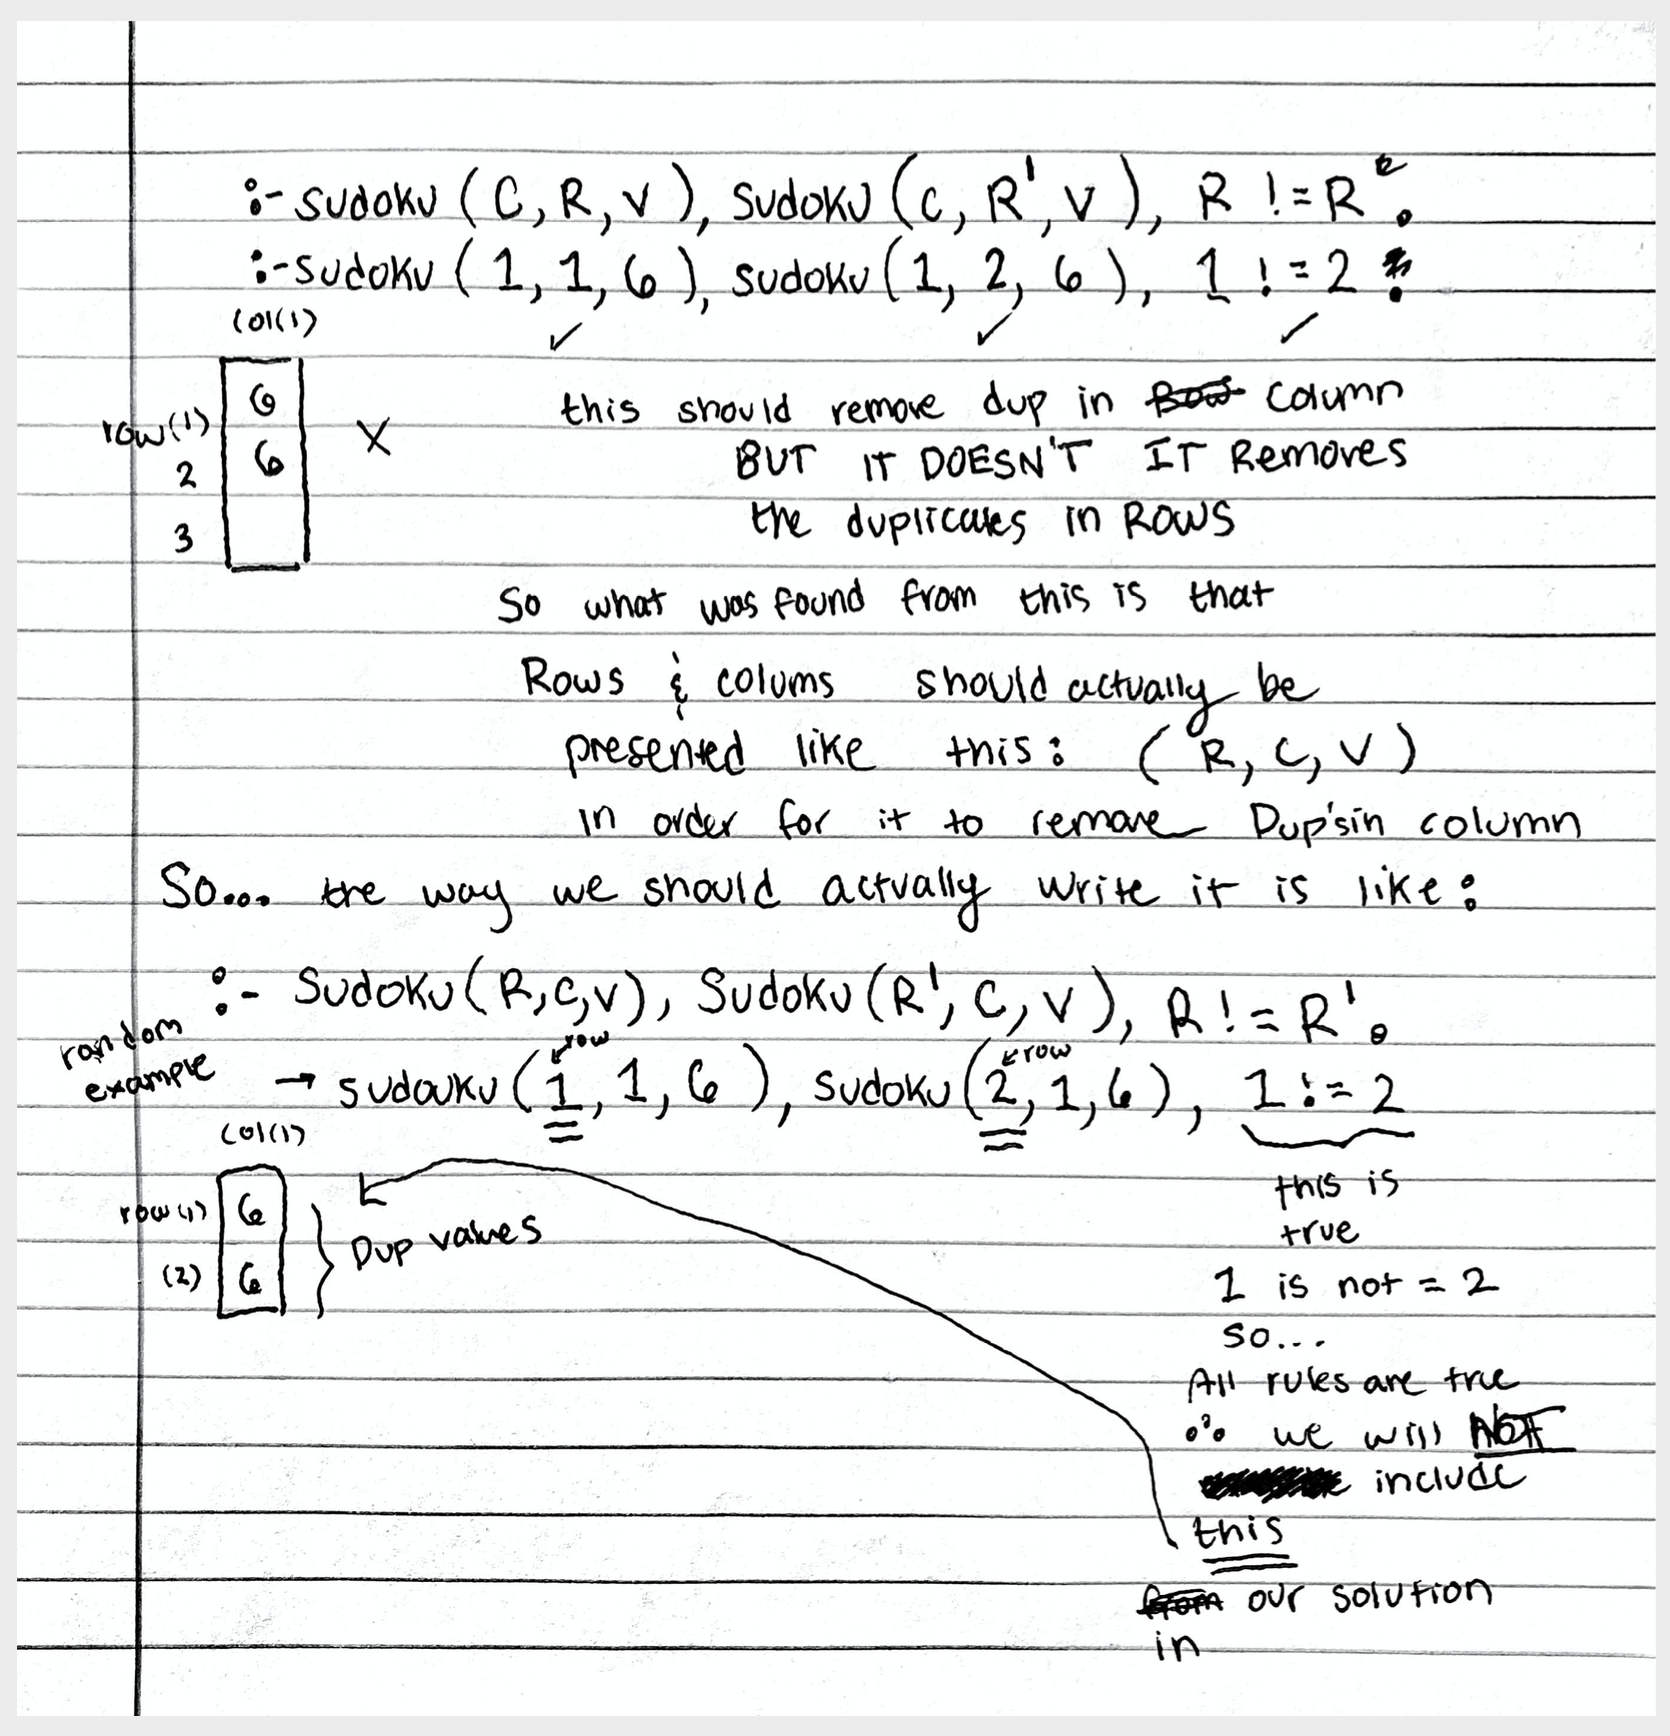 :- sudoku (C, R, V), sudoku (C, R', V), R != R'.
:- sudoku (1, 1, 6), sudoku (1, 2, 6), 1 != 2.
col(1) ✓ ✓ ✓
row(1) 6
2 6 X
3
this should remove dup in Row column
BUT IT DOESN'T IT Removes
the duplicates in ROWS
So what was found from this is that
Rows & colums should actually be
presented like this: (R, C, V)
in order for it to remove Dup's in column
So... the way we should actually write it is like:
:- Sudoku (R, C, V), Sudoku (R', C, V), R != R'.
random
example
←row ←row
→ sudouku (1, 1, 6), sudoku (2, 1, 6), 1 != 2
col(1)
row(1) 6
(2) 6
} Dup values
this is
true
1 is not = 2
so...
All rules are true
∴ we will NOT
include
this
from our solution
in